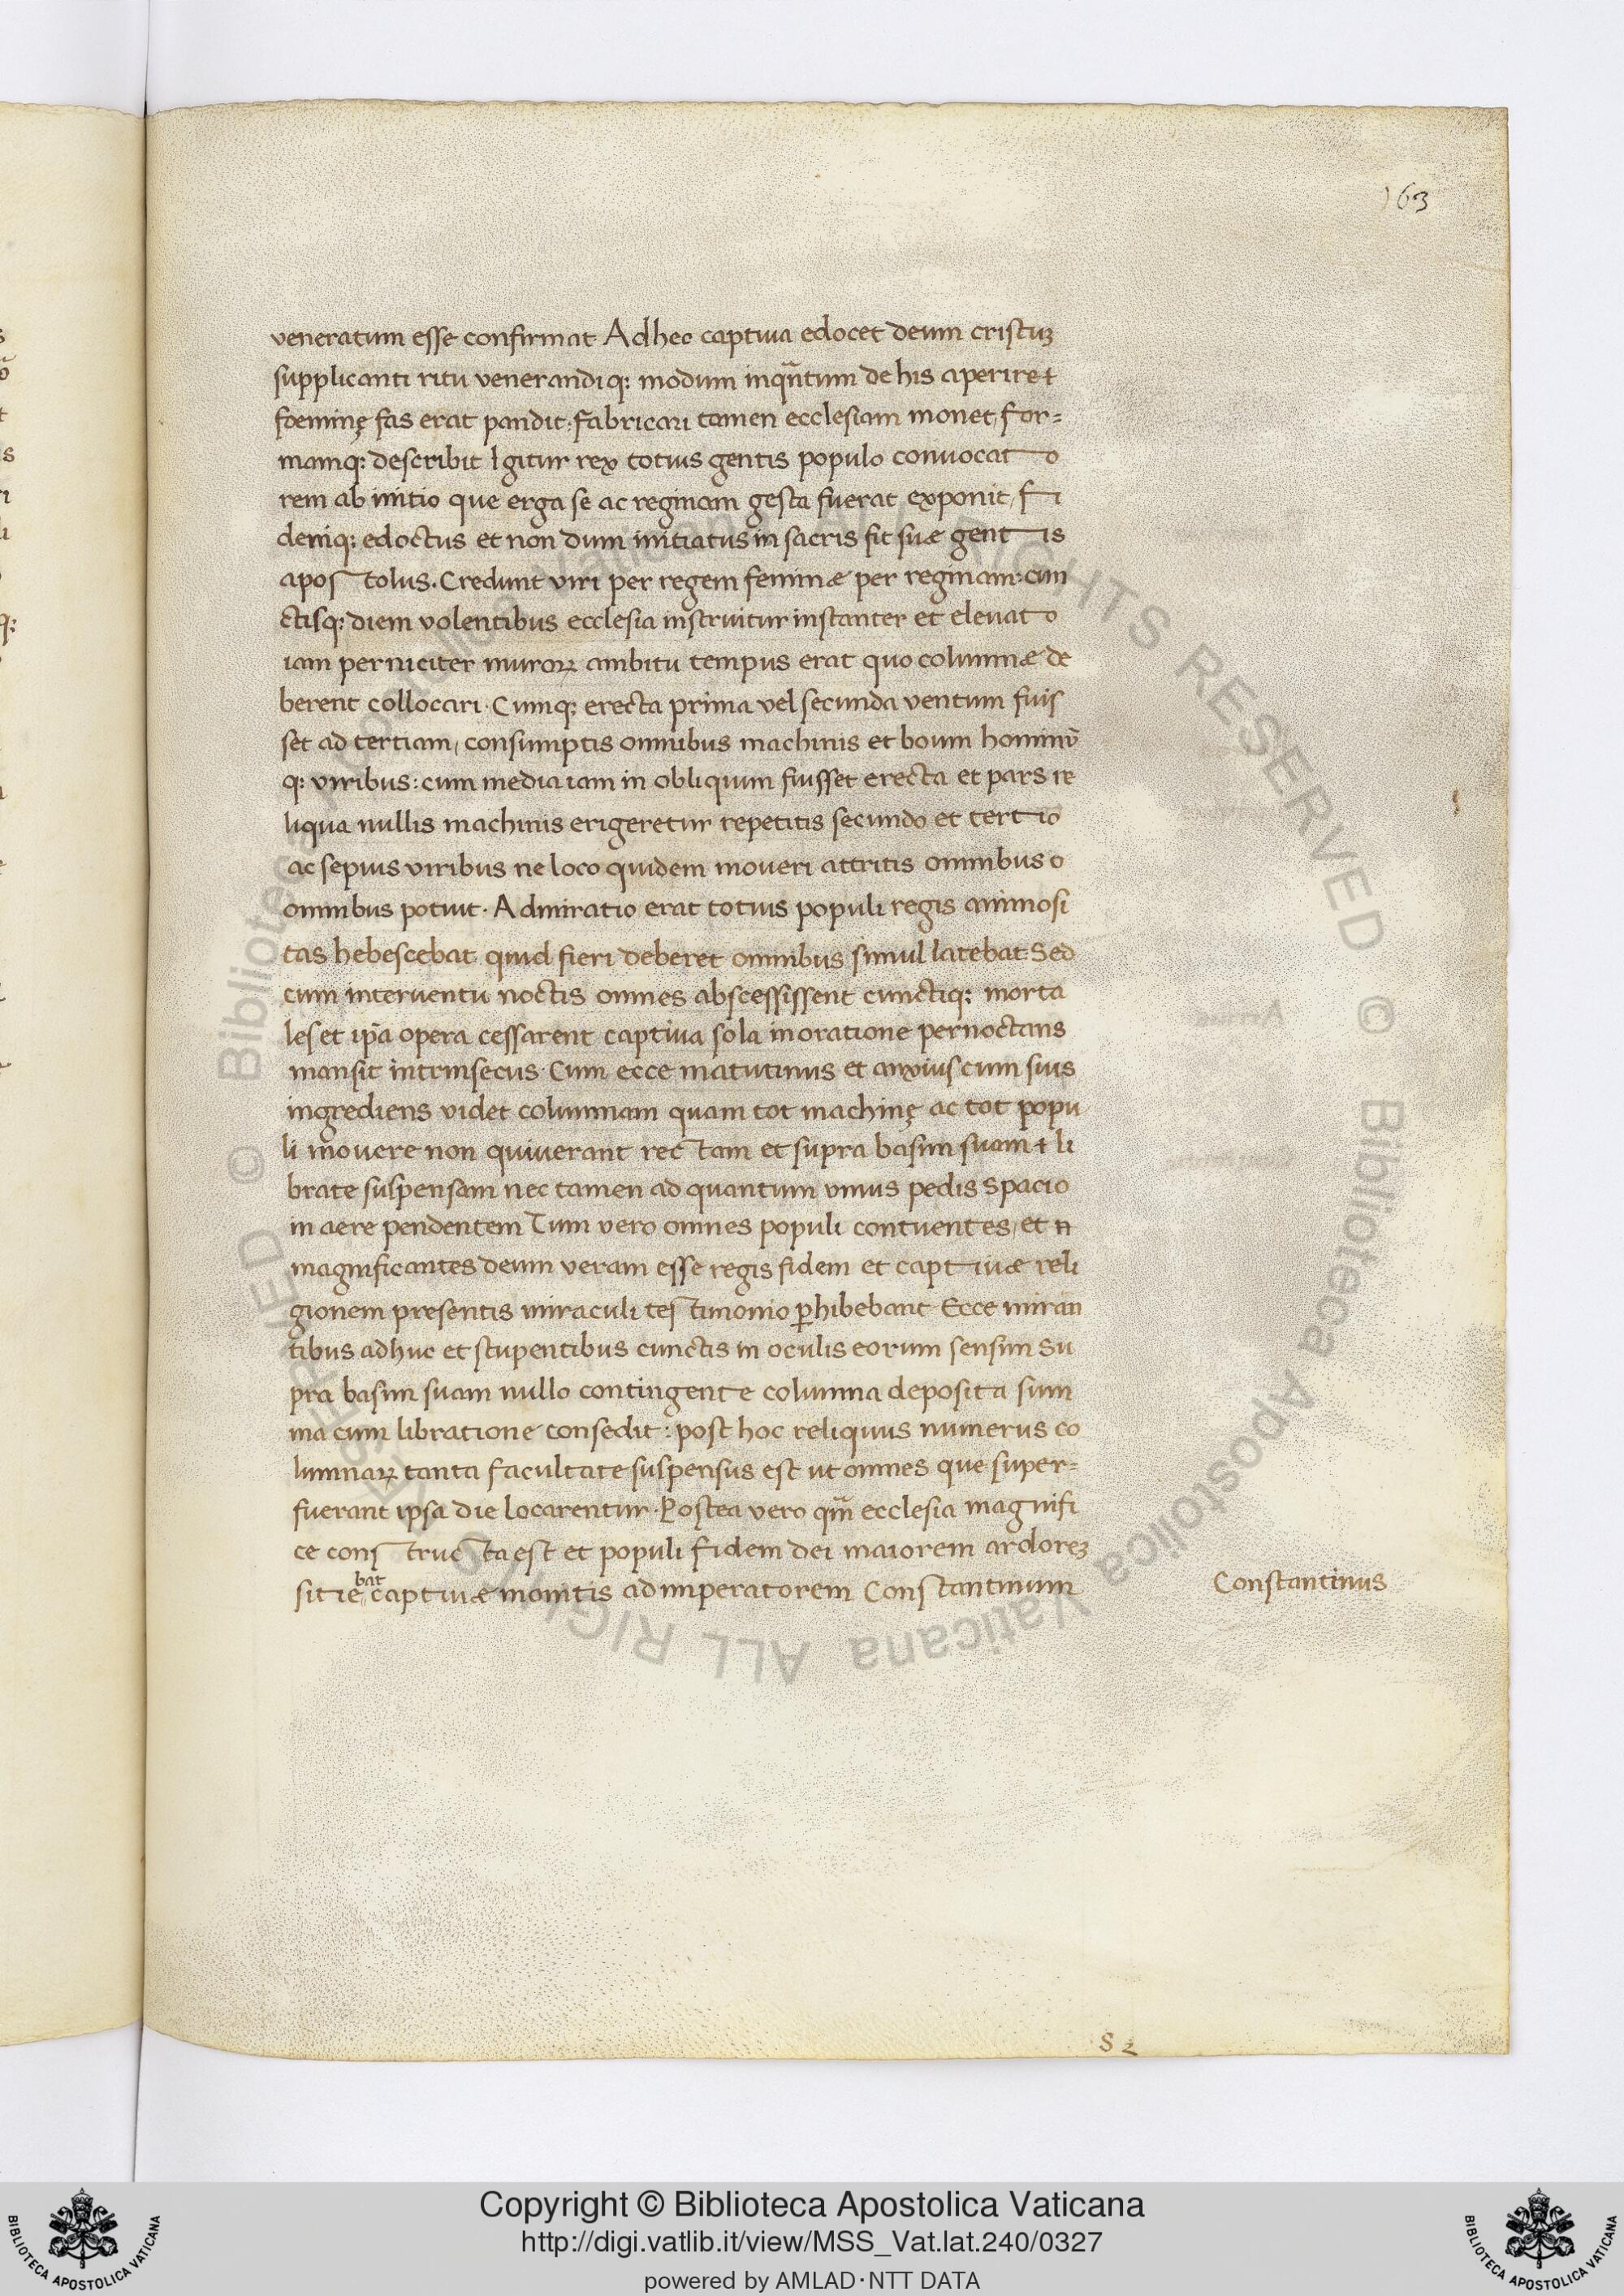 163
veneratum esse confirmat Adhec captiva edocet deum cristuꝫ
supplicanti ritu venerandiqꝫ modum inqᷓntum de his aperire ł
foeminę fas erat pandit: fabricari tamen ecclesiam monet, for=
mamqꝫ describit Igitur rex totius gentis populo convocato
rem ab initio que erga se ac reginam gesta fuerat exponit, fi
deniqꝫ edoctus et non dum initiatus in sacris fit suæ gentis
apostolus. Credunt viri per regem feminæ per reginam: cun
ctisqꝫ diem volentibus ecclesia instruitur instanter et elevato
iam perniciter muroꝝ ambitu tempus erat quo columnæ de
berent collocari. Cumqꝫ erecta prima vel secunda ventum fuis
set ad tertiam, consumptis omnibus machinis et boum hominū
qꝫ viribus: cum media iam in obliquum fuisset erecta et pars re
liqua nullis machinis erigeretur repetitis secundo et tertio
ac sepius viribus ne loco quidem moveri attritis omnibus o
omnibus potuit. Admiratio erat totius populi regis animosi
tas hebescebat quid fieri deberet omnibus simul latebat. Sed
cum interventu noctis omnes abscessissent cunctiqꝫ morta
les et ip̄a opera cessarent captiva sola in oratione pernoctans
mansit intrinsecus. Cum ecce matutinus et anxius cum suis
ingrediens videt columnam quam tot machinę ac tot popu
li movere non quiverant rectam et supra basim suam ł li
brate suspensam nec tamen ad quantum unius pedis spacio
in aere pendentem Tum vero omnes populi contuentes, et n
magnificantes deum veram esse regis fidem et captivæ reli
gionem presentis miraculi testimonio ꝑhibebant Ecce miran
tibus adhuc et stupentibus cunctis in oculis eorum sensim su
pra basim suam nullo contingente columna deposita sum
ma cum libratione consedit: post hoc reliquus numerus co
lumnaꝝ tanta facultate suspensus est ut omnes que super=
fuerant ipsa die locarentur. Postea vero qm̄ ecclesia magnifi
ce constructa est et populi fidem dei maiorem ardoreꝫ
bat
sitie captivæ monitis ad imperatorem Constantinum
Constantinus
S 2
© Biblioteca Apostolica Vaticana ALL RIGHTS RESERVED
© Biblioteca Apostolica Vaticana ALL RIGHTS RESERVED
Copyright © Biblioteca Apostolica Vaticana
http://digi.vatlib.it/view/MSS_Vat.lat.240/0327
powered by AMLAD·NTT DATA
BIBLIOTECA APOSTOLICA VATICANA
BIBLIOTECA APOSTOLICA VATICANA